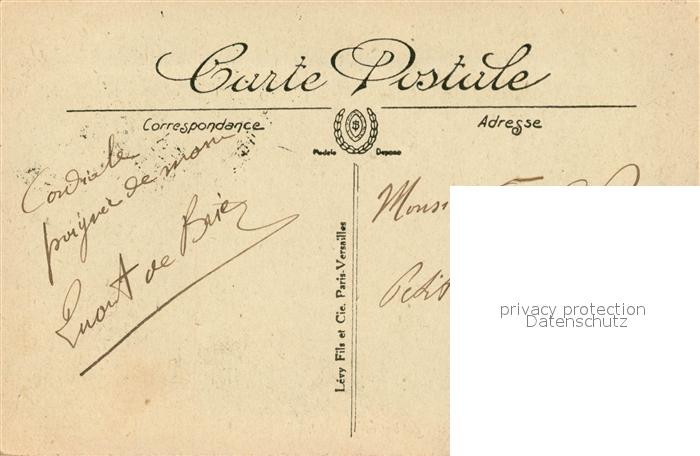 Carte Postale
Correspondance
Adresse
Modèle Déposé
Cordiale
poignée de main
de Brie
Lévy Fils et Cie. Paris-Versailles
Petit
privacy protection
Datenschutz